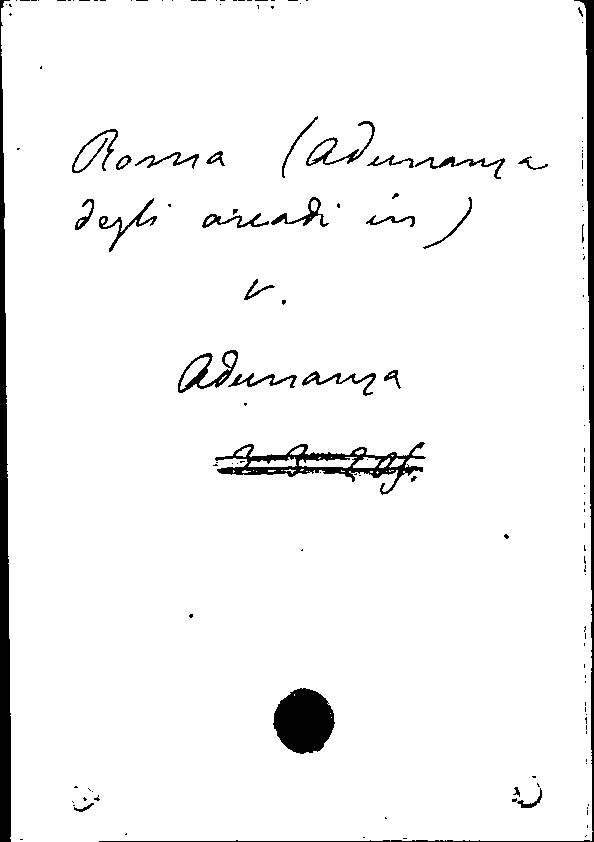 Roma (Adunanza
degli arcadi in)
v.
Adunanza